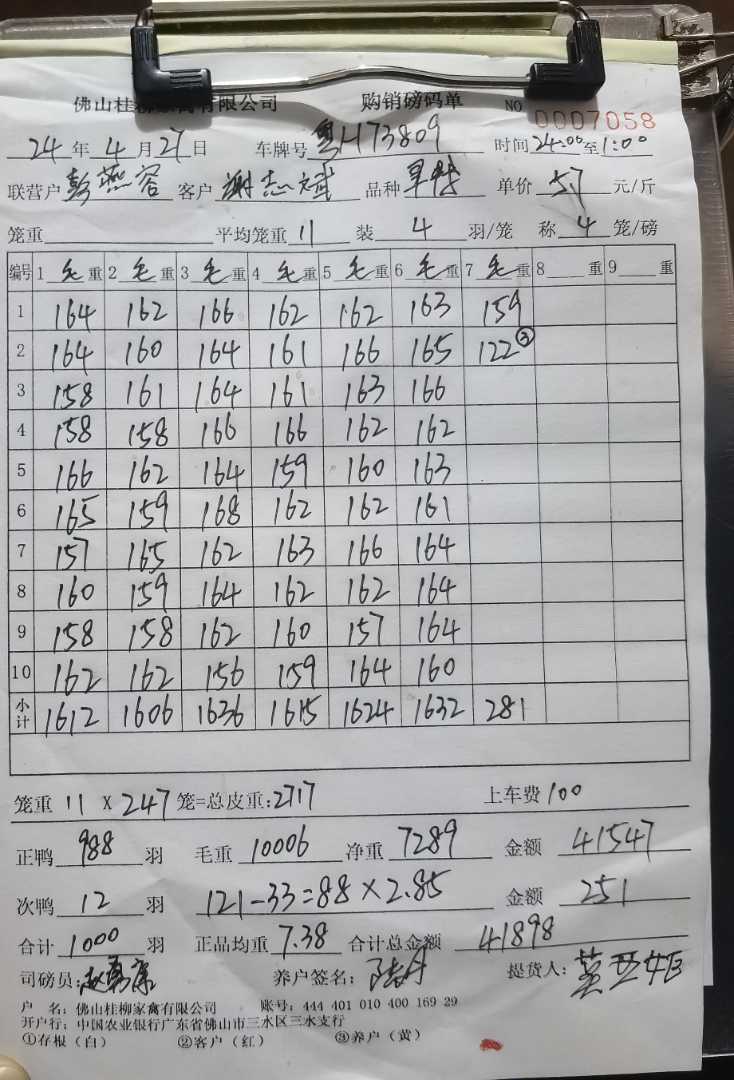 佛山桂柳家禽有限公司 购销磅码单 NO 0007058
24年4月27日 车牌号粤H73809 时间24:00至1:00
联营户彭燕容 客户谢志斌 品种早特 单价5.7元/斤
笼重 平均笼重11 装4羽/笼 称4笼/磅
编号 1毛重 2毛重 3毛重 4毛重 5毛重 6毛重 7毛重 8重 9重
1 164 162 166 162 162 163 159
2 164 160 164 161 166 165 122③
3 158 161 164 161 163 166
4 158 158 166 166 162 162
5 166 162 164 159 160 163
6 165 159 168 162 162 161
7 157 165 162 163 166 164
8 160 159 164 162 162 164
9 158 158 162 160 157 164
10 162 162 156 159 164 160
小计 1612 1606 1636 1615 1624 1632 281
笼重11×247笼=总皮重:2717 上车费100
正鸭988羽 毛重10006 净重7289 金额41547
次鸭12羽 121-33=88×2.85 金额251
合计1000羽 正品均重7.38 合计总金额41898
司磅员: 养户签名: 提货人:
户 名:佛山桂柳家禽有限公司 账号:444 401 010 400 169 29
开户行:中国农业银行广东省佛山市三水区三水支行
①存根(白) ②客户(红) ③养户(黄)